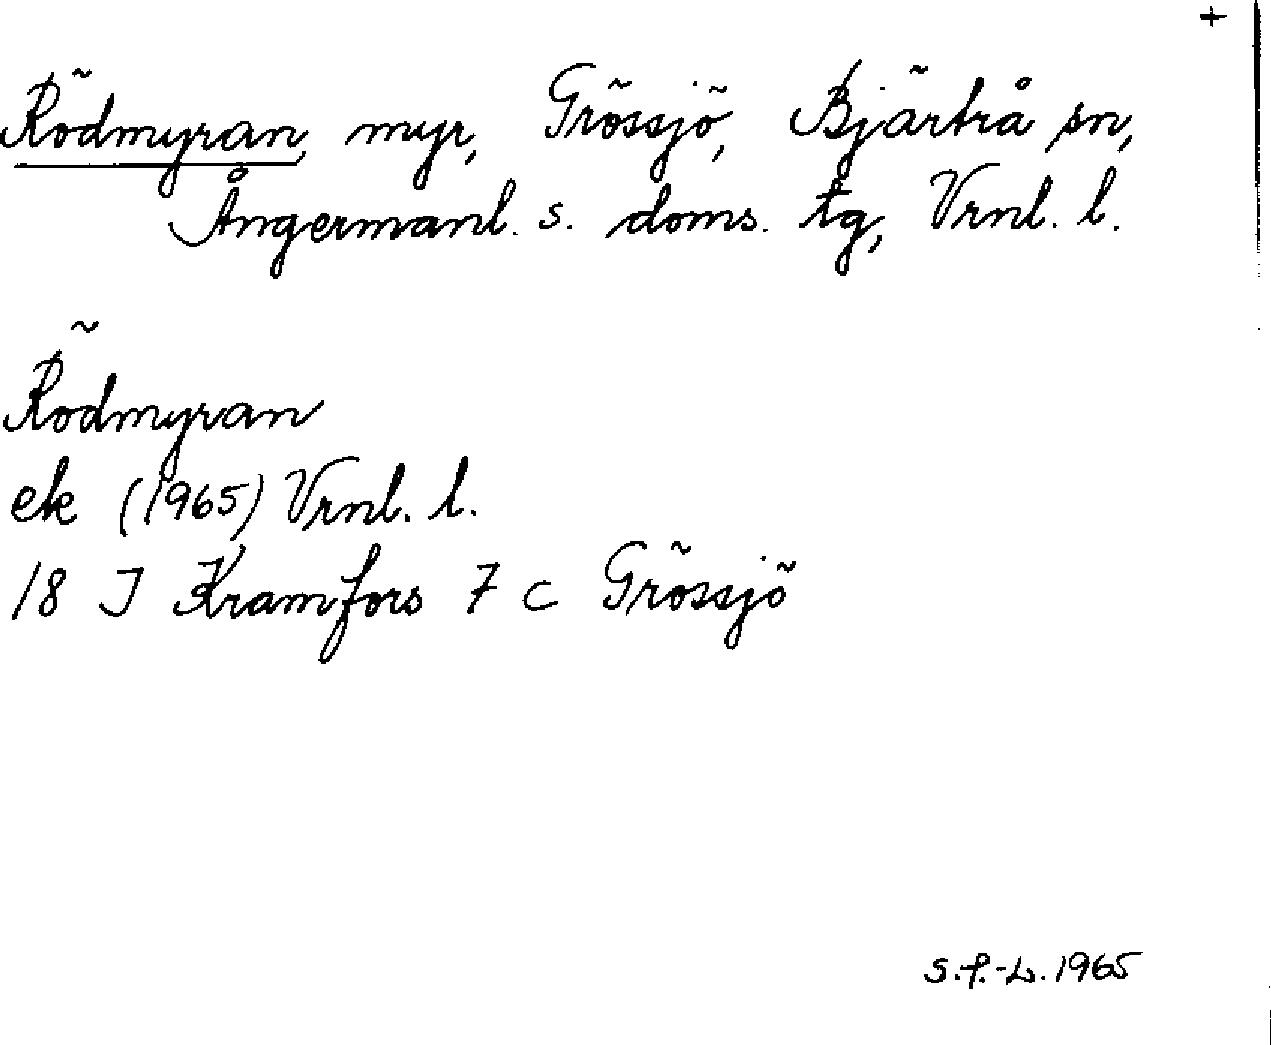 +
Rödmyran, myr, Grössjö, Bjärtrå sn,
Ångermanl. s. doms. tg, Vrnl. l.
Rödmyran
ek (1965) Vrnl. l.
18 I Kramfors 7 c Grössjö
S.f.-L. 1965